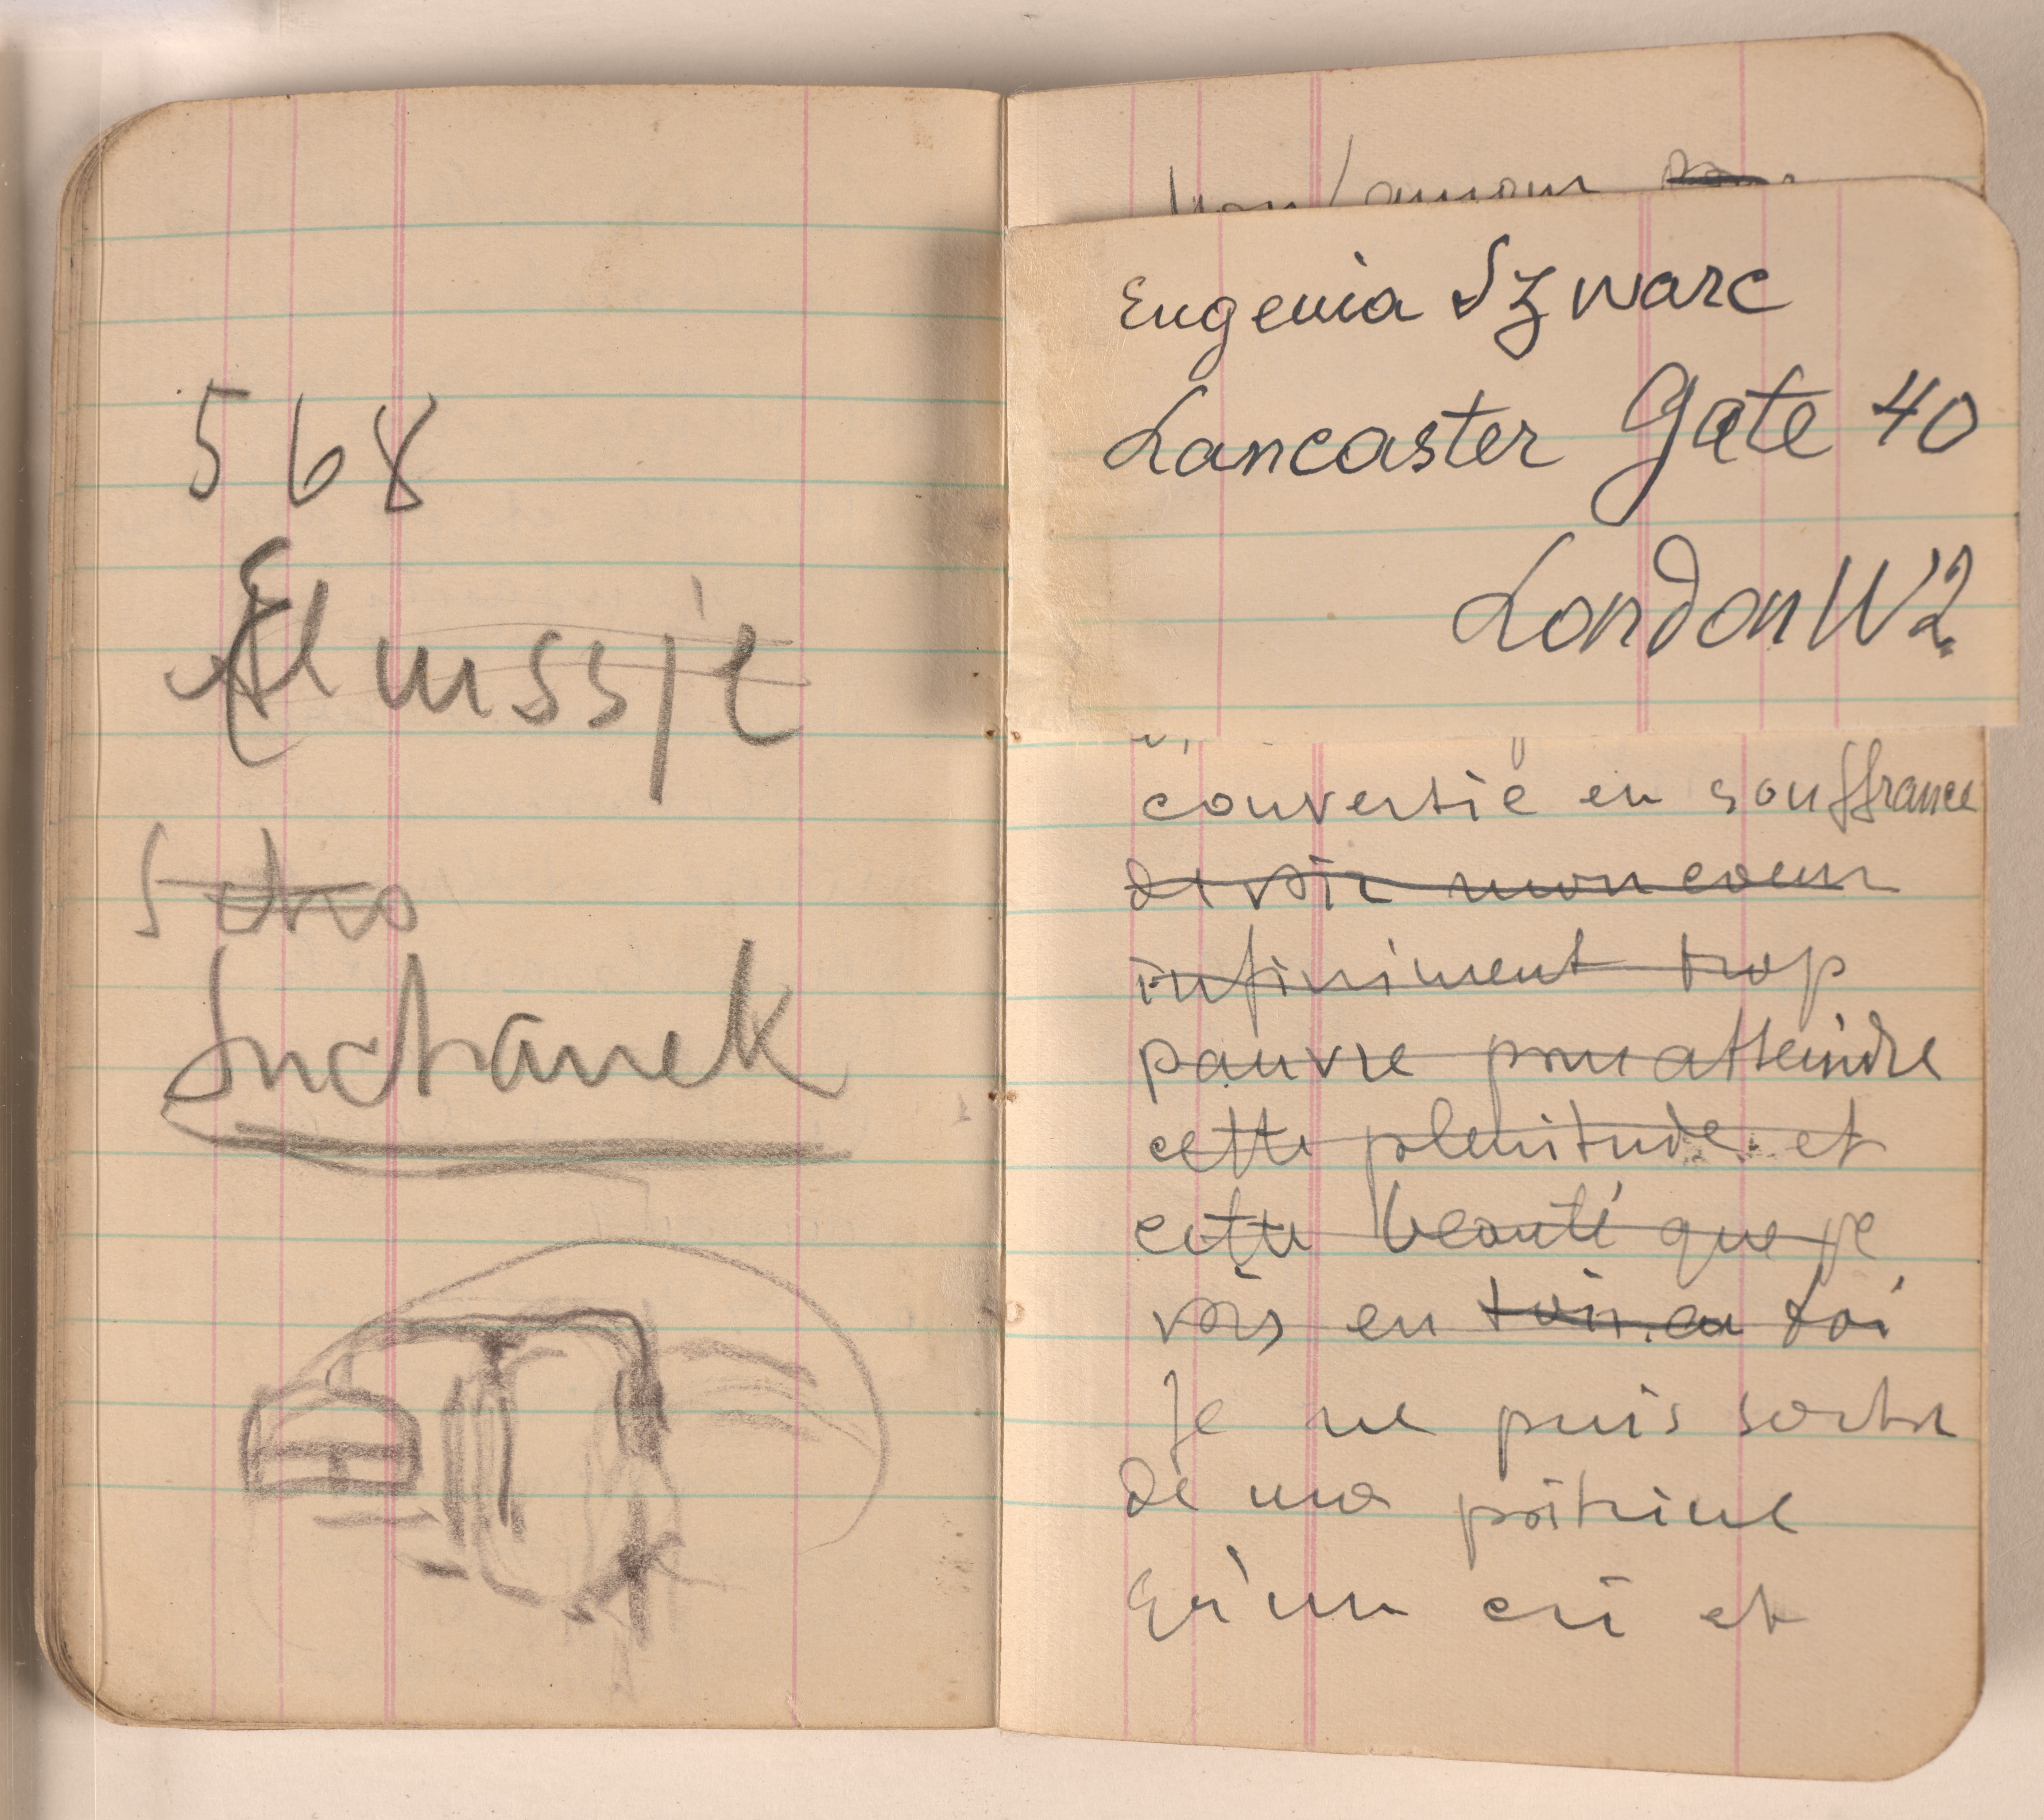 568
Suchanek
Mon amour
Eugenia Szwarc
Lancaster Gate 40
London W2
convertie en souffrance
mon coeur
infiniment trop
pauvre pour atteindre
cette plenitude et
cette beauté que je
vois en toi
Je ne puis sortir
de ma poitrine
qu'un cri et